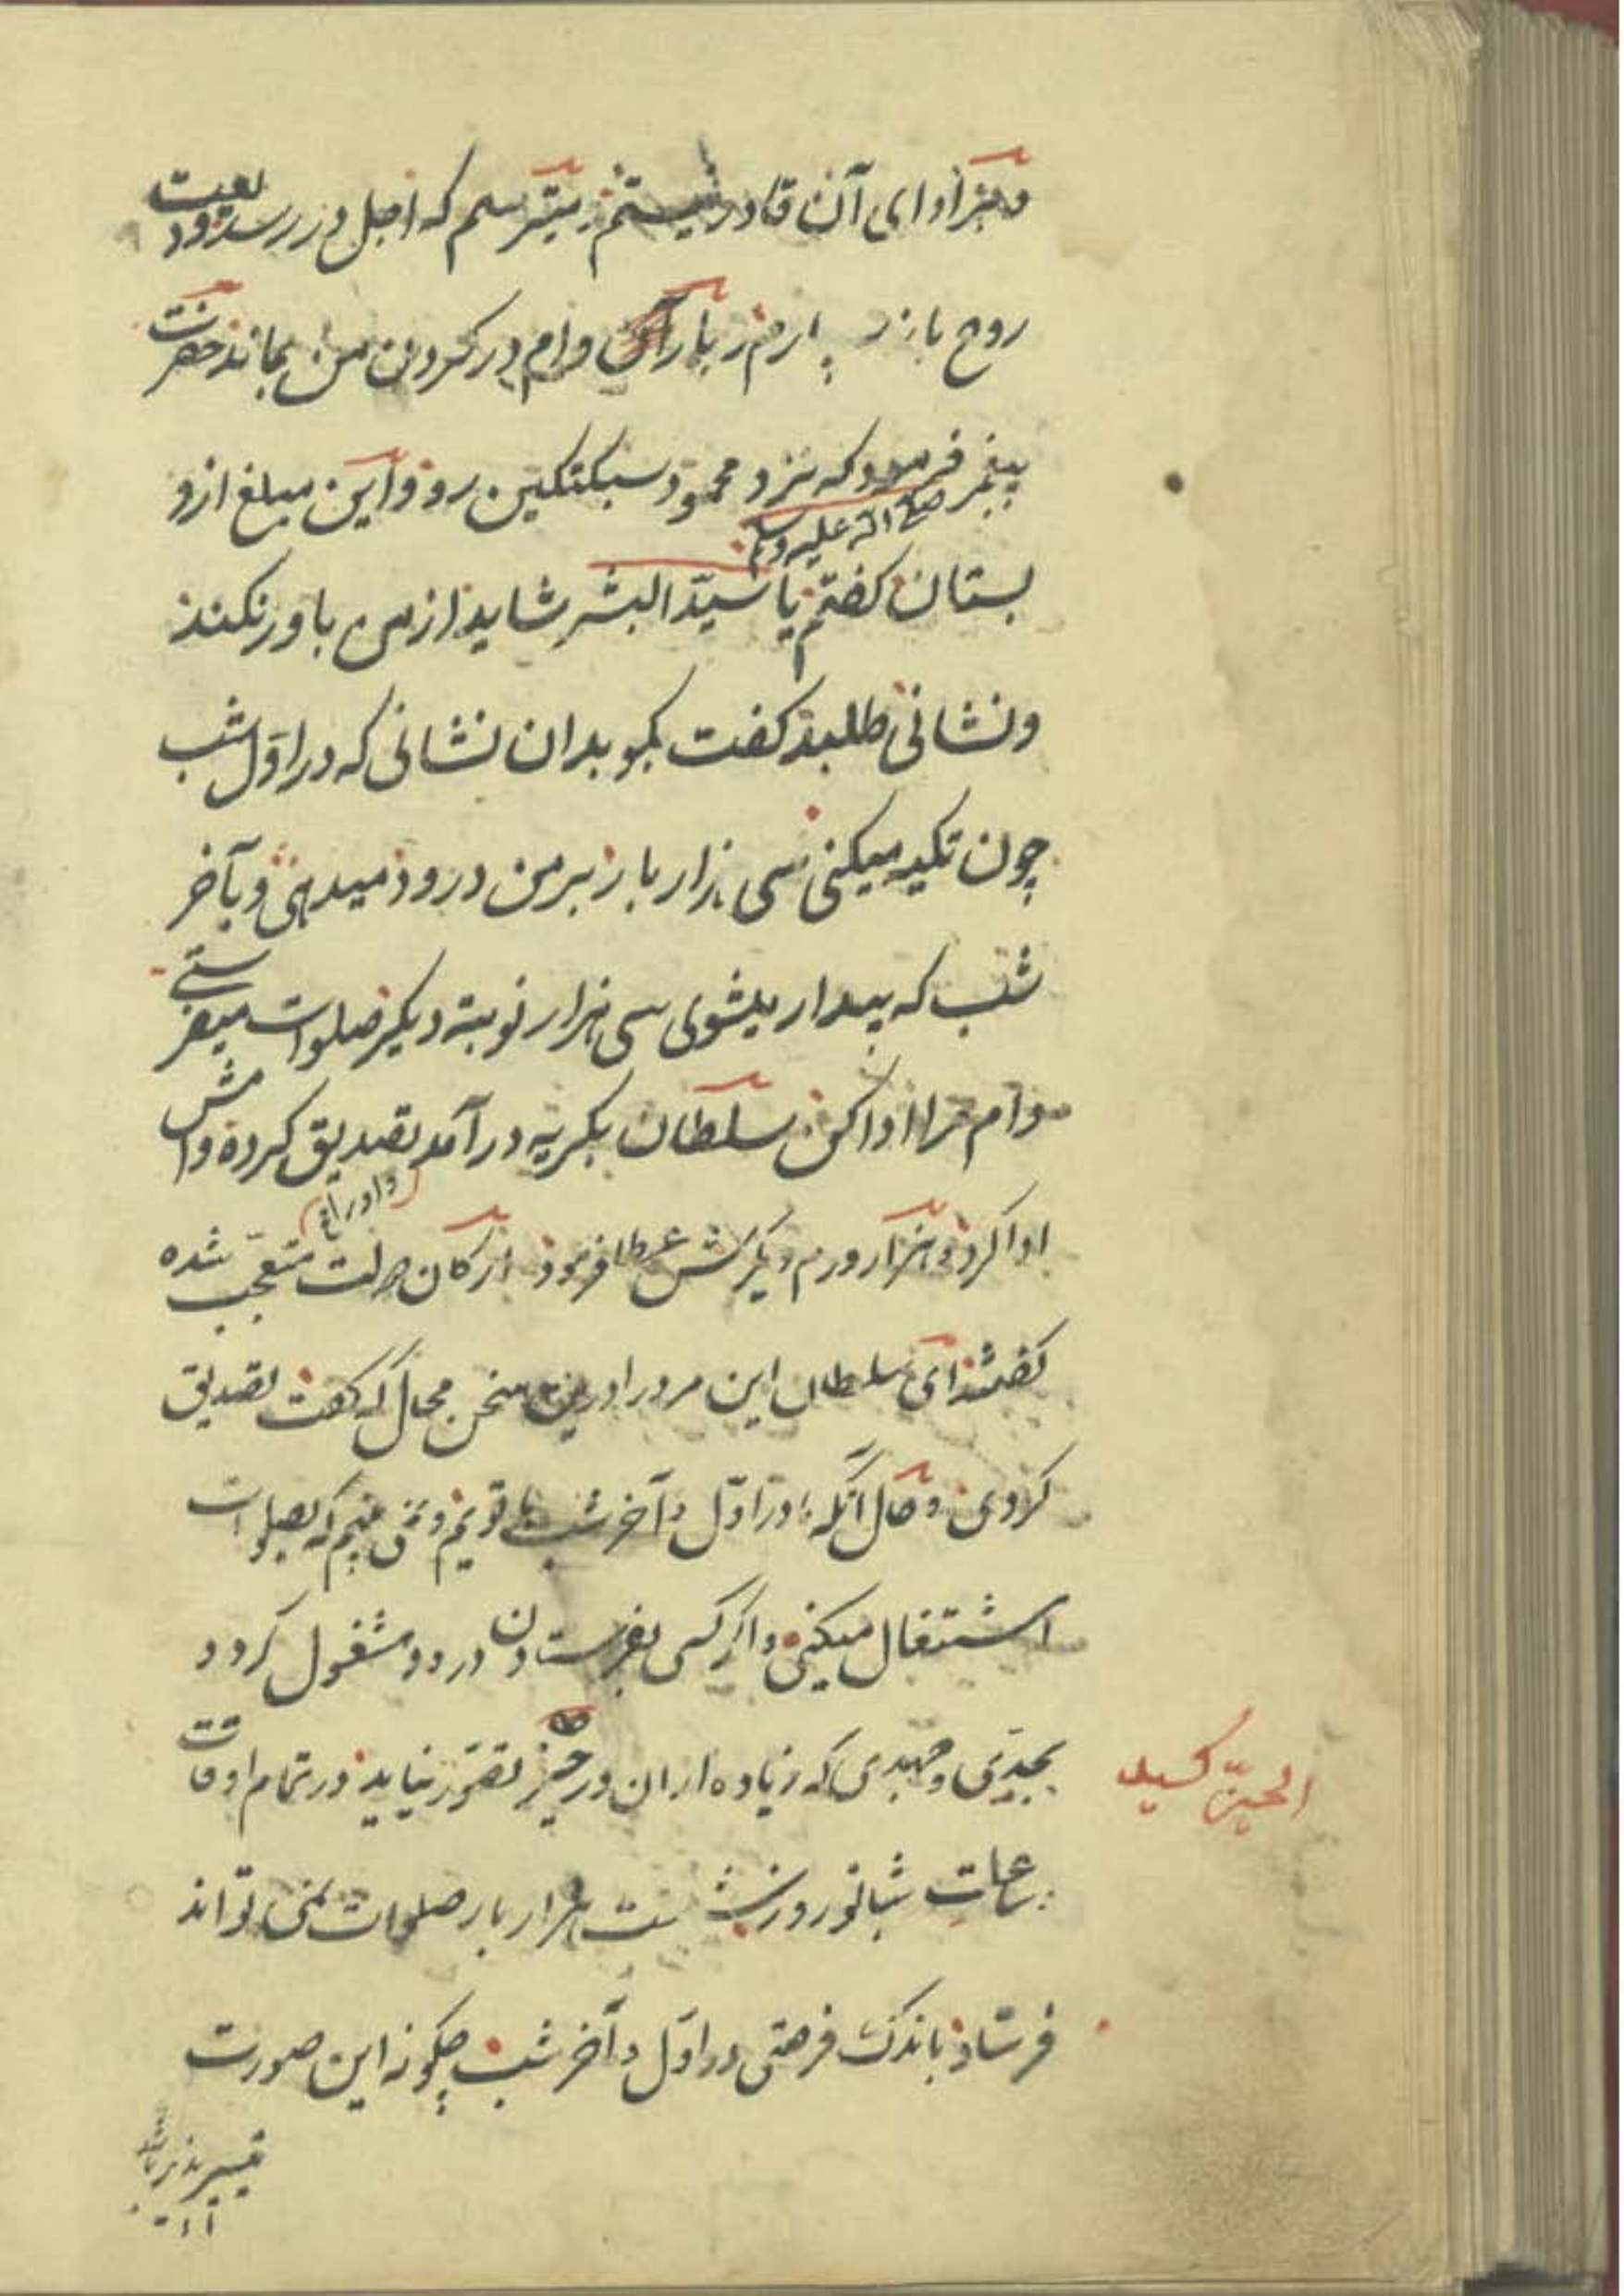 و بر ادای آن قادر نیستم میترسم که اجل در رسد و ودیعت
روح باز سپارم و بار آن وام در کردن من بماند حضرت
پیغمبر صلی الله علیه وسلم فرمود که نزد محمود سبکتکین رو و این مبلغ ازو
بستان کفتم یا سید البشر شاید از من باور نکند
و نشانی طلبد کفت بکو بدان نشانی که در اول شب
چون تکیه میکنی سی هزار بار بر من درود میدهی و بآخر
شب که بیدار میشوی سی هزار نوبة دیکر صلوات میفرستی
وام مرا ادا کن سلطان بکریه در آمد تصدیق کرده وامش
ادا کرد و هزار درم دیکرش عطا فرمود ارکان دولت متعجب شده
کفتند ای سلطان این مرد را درین سخن محال که کفت تصدیق
کردی و حال آنکه ما در اول و آخر شب با توییم و نمی بینیم که بصلوات
اشتغال میکنی و اکر کسی بفرستادن درود مشغول کردد
بجدی و جهدی که زیاده از ان در حیز تصور نیاید در تمام اوقات
الحیز
ساعات شبانروز شصت هزار بار صلوات نمی تواند
فرستاد باندک فرصتی در اول و آخر شب چکونه این صورت